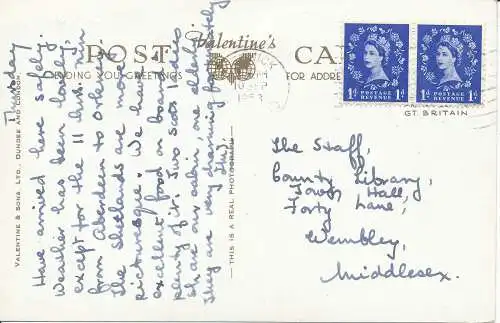 POST CARD
Valentine's
SENDING YOU GREETINGS
FOR ADDRESS
10 SEP
1 D POSTAGE REVENUE 1 D
1 D POSTAGE REVENUE 1 D
GT. BRITAIN
VALENTINE & SONS, LTD., DUNDEE AND LONDON.
THIS IS A REAL PHOTOGRAPH
Thursday
Have arrived here safely.
Weather has been lovely,
except for the 11 hrs. run
from Aberdeen to Orkney.
The Shetlands are most
picturesque. We had
excellent food on board &
plenty of it. Two Scots ladies
share our cabin
They are very charming
The Staff,
County Library,
Town Hall,
Forty Lane,
Wembley,
Middlesex.